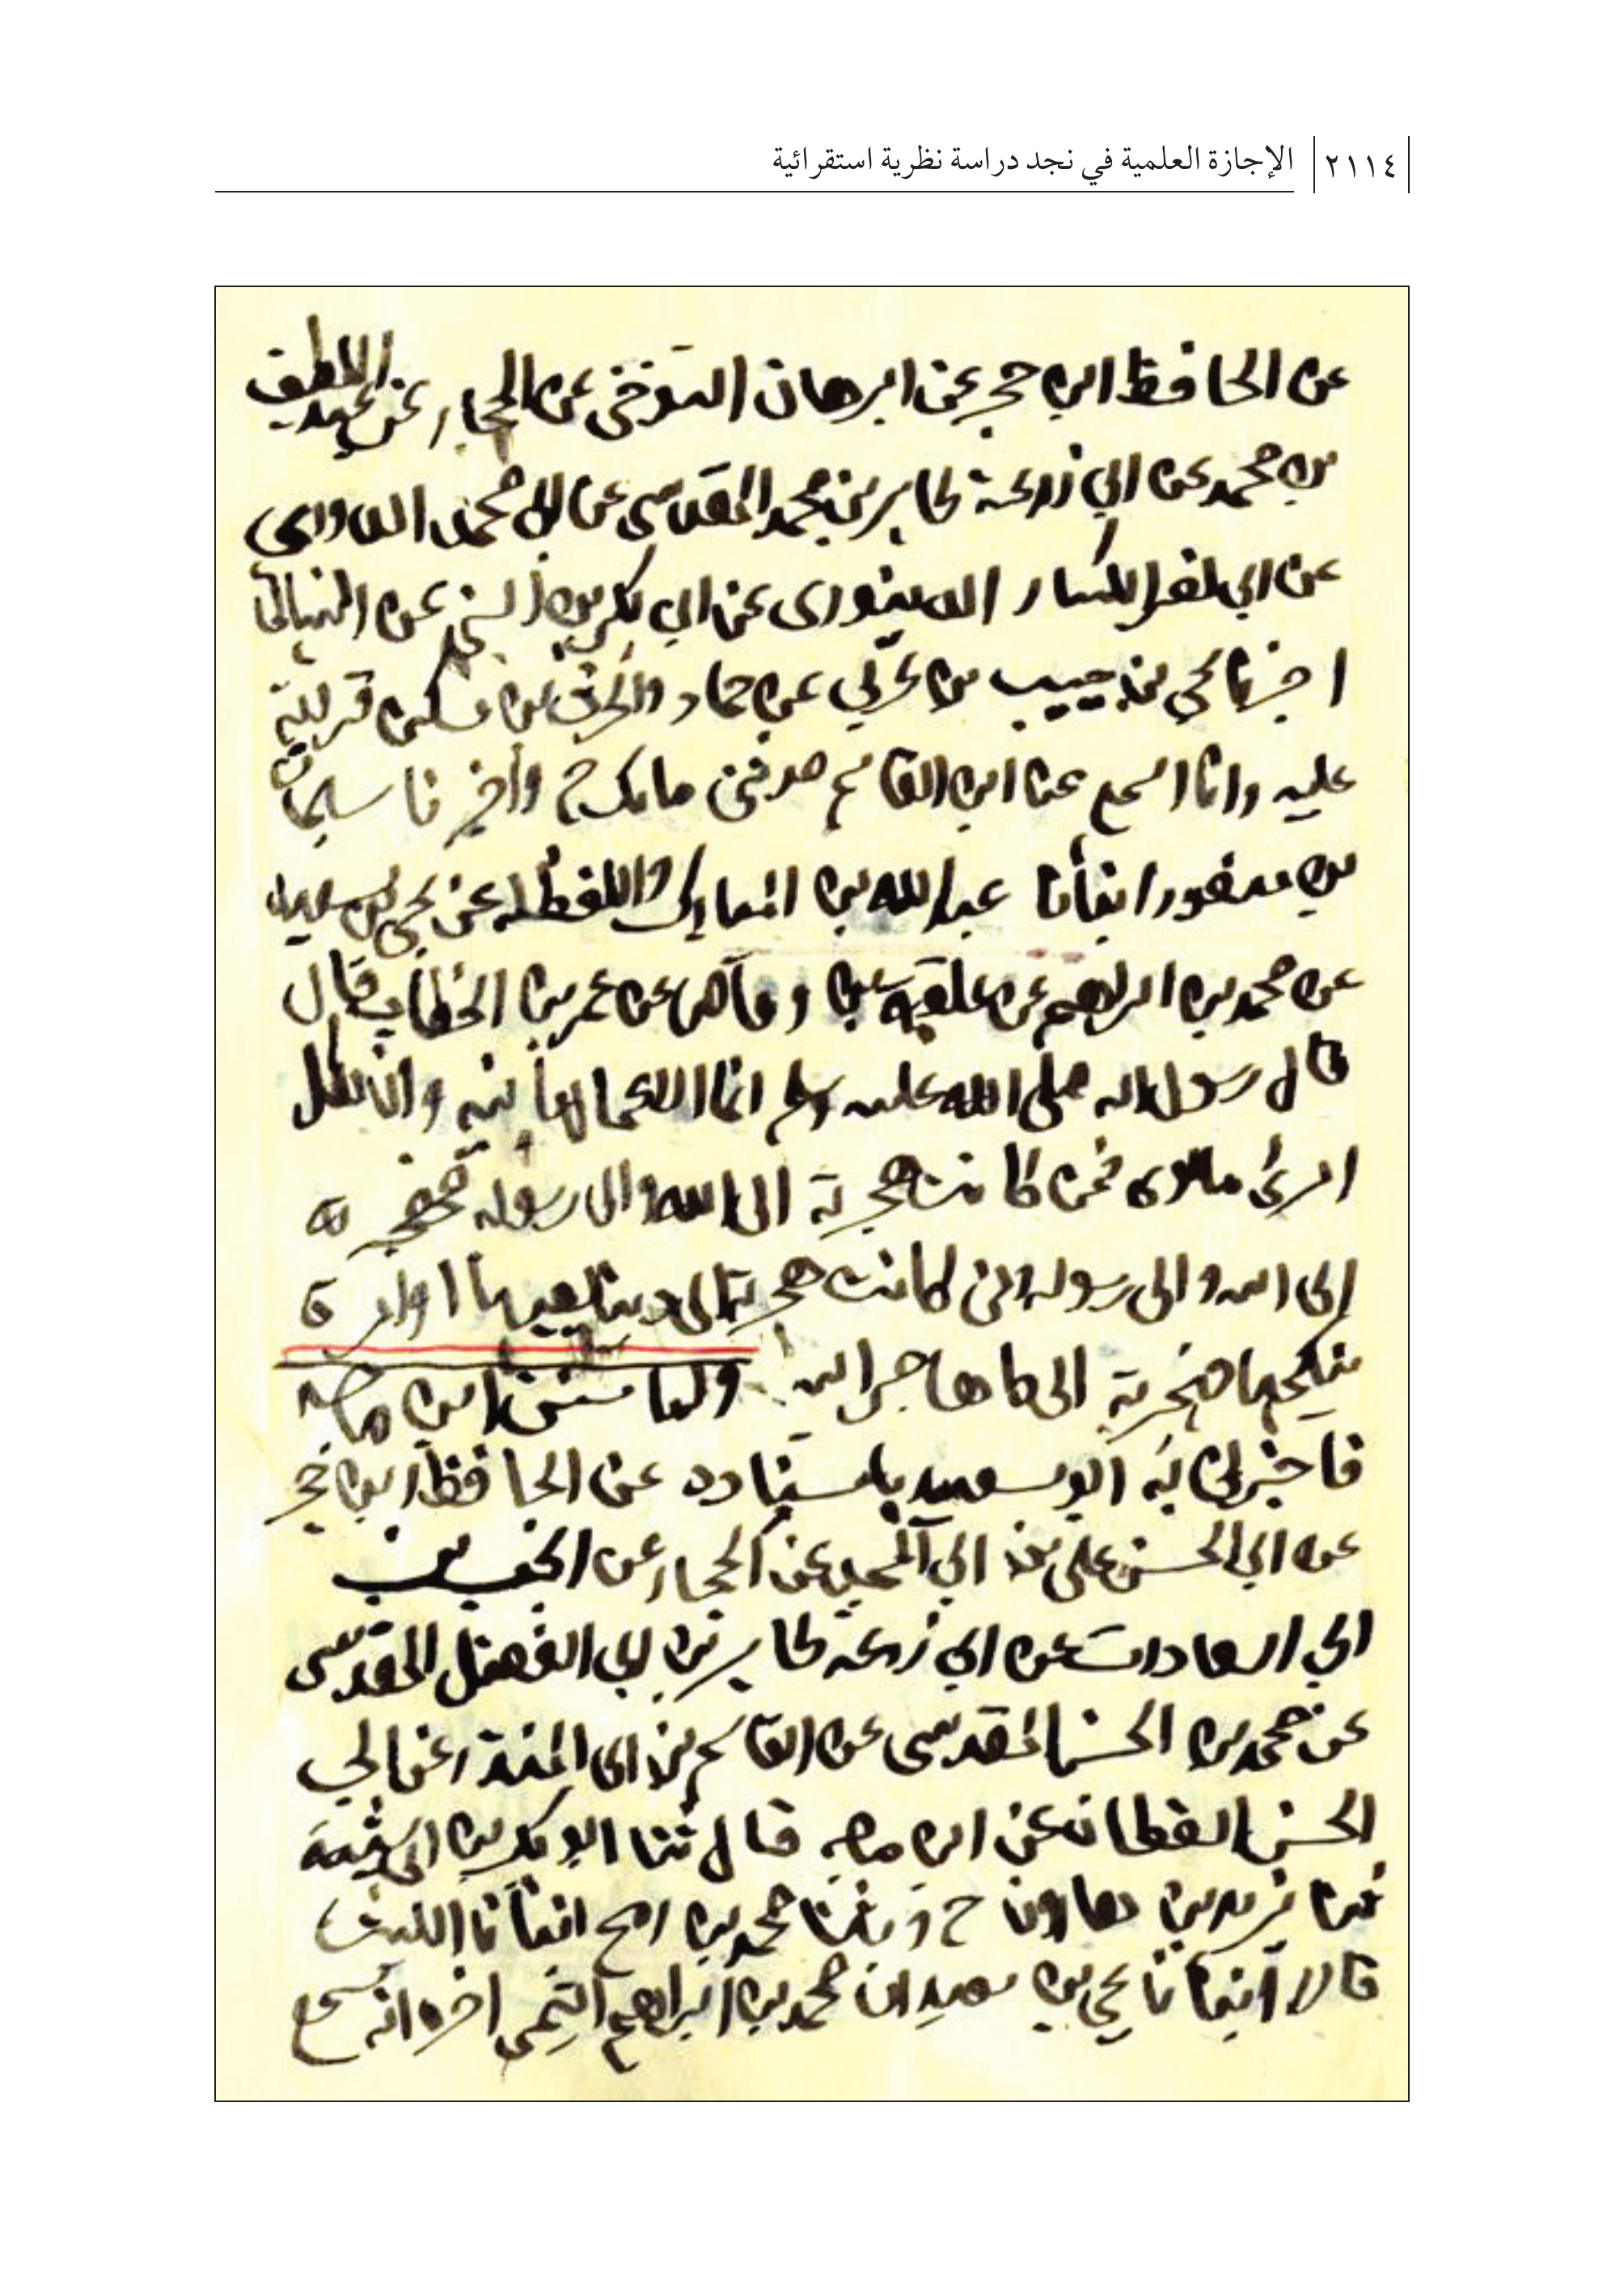 ٢١١٤ الإجازة العلمية في نجد دراسة نظرية استقرائية
عن الحافظ ابن حجر عن البرهان التنوخي عن الحجار عن عبد اللطيف
بن محمد عن ابي زرعة طاهر بن محمد المقدسي عن ابي محمد الداودي
عن ابي الكسار الدينوري عن ابي بكر بن السني عن النسائي
اخبرنا يحي بن حبيب بن عربي عن حماد والحرث بن مسكين قراءة
عليه وانا اسمع عن ابن القاسم حدثني مالك ح وأخبرنا سليمان
بن منصور انبأنا عبد الله بن المبارك واللفظ له عن يحي بن سعيد
عن محمد بن ابراهيم عن علقمة بن وقاص عن عمر بن الخطاب قال
قال رسول الله صلى الله عليه وسلم انما الاعمال بالنية وانما لكل
امرئ ما نوى فمن كانت هجرته الى الله والى رسوله فهجرته
إلى الله والى رسوله ومن كانت هجرته الى دنيا يصيبها او امرأة
ينكحها فهجرته الى ما هاجر اليه واما سنن ابن ماجه
فاخبرني به ابو سعيد باسناده عن الحافظ ابن حجر
عن ابي الحسن علي بن ابي المجد عن الحجار عن انجب بن
ابي السعادات عن ابي زرعة طاهر بن ابي الفضل المقدسي
عن محمد بن الحسن المقدسي عن القاسم بن ابي المنذر عن ابي
الحسن القطان عن ابن ماجه قال ثنا ابو بكر بن ابي شيبة
ثنا يزيد بن هارون ح وثنا محمد بن رمح انبأنا الليث
قالا انبأنا يحي بن سعيد ان محمد بن ابراهيم التيمي اخبره انه سمع